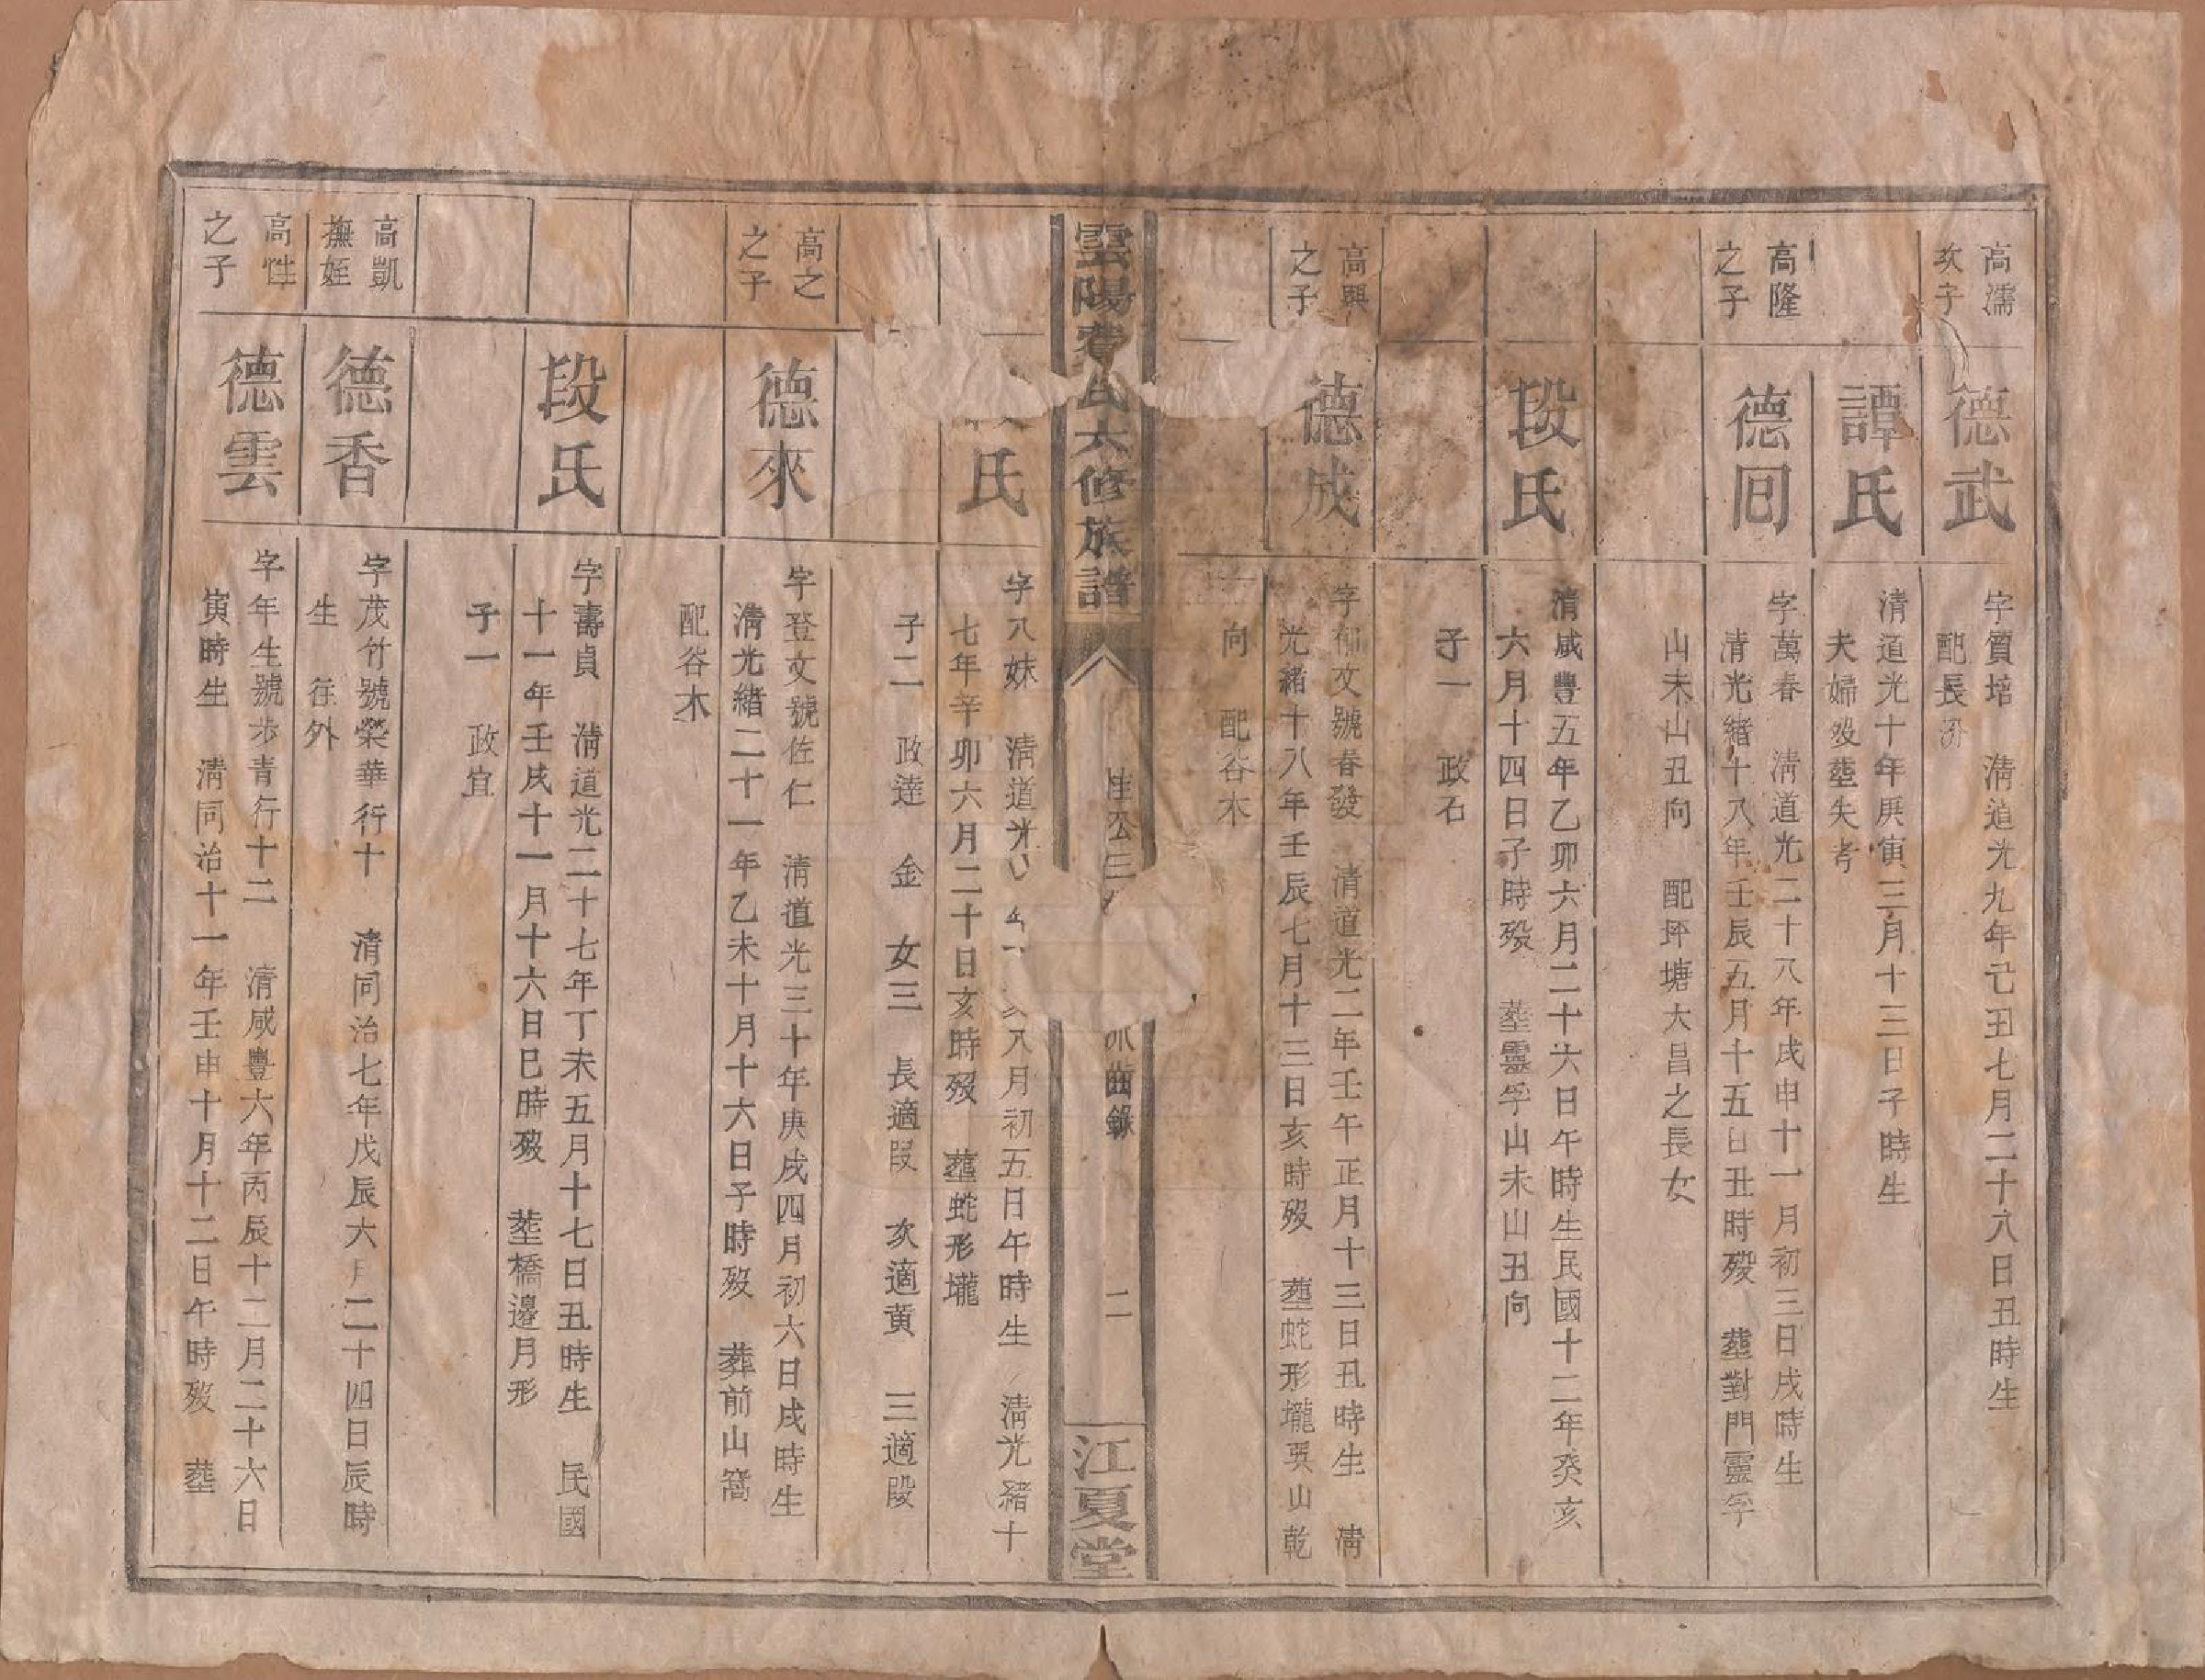 高濡
次子
德武
字質培 清道光九年己丑七月二十八日丑時生
配長沙
譚氏
清道光十年庚寅三月十三日子時生
夫婦歿塟失考
高隆
之子
德囘
字萬春 清道光二十八年戌申十一月初三日戌時生
清光緒十八年壬辰五月十五日丑時歿 塟對門靈孚
山未山丑向 配坪塘大昌之長女
段氏
清咸豐五年乙卯六月二十六日午時生民國十二年癸亥
六月十四日子時歿 塟靈孚山未山丑向
子一 政石
高興
之子
德成
字郁文號春發 清道光二年壬午正月十三日丑時生 清
光緒十八年壬辰七月十三日亥時歿 塟蛇形壠巽山乾
向 配谷木
雲陽黄氏六修族譜
公三 齒錄
二
江夏堂
氏
字八妹 清道光 八月初五日午時生 清光緒十
七年辛卯六月二十日亥時歿 塟蛇形壠
子二 政達 金 女三 長適段 次適黄 三適段
高之
之子
德來
字登文號佐仁 清道光三十年庚戌四月初六日戌時生
清光緒二十一年乙未十月十六日子時歿 葬前山窩
配谷木
段氏
字壽貞 清道光二十七年丁未五月十七日丑時生 民國
十一年壬戌十一月十六日巳時歿 塟橋邊月形
子一 政宜
高凱
撫姪
德香
字茂竹號榮華行十 清同治七年戊辰六月二十四日辰時
生 往外
高性
之子
德雲
字年生號步青行十二 清咸豐六年丙辰十二月二十六日
寅時生 清同治十一年壬申十月十二日午時歿 塟